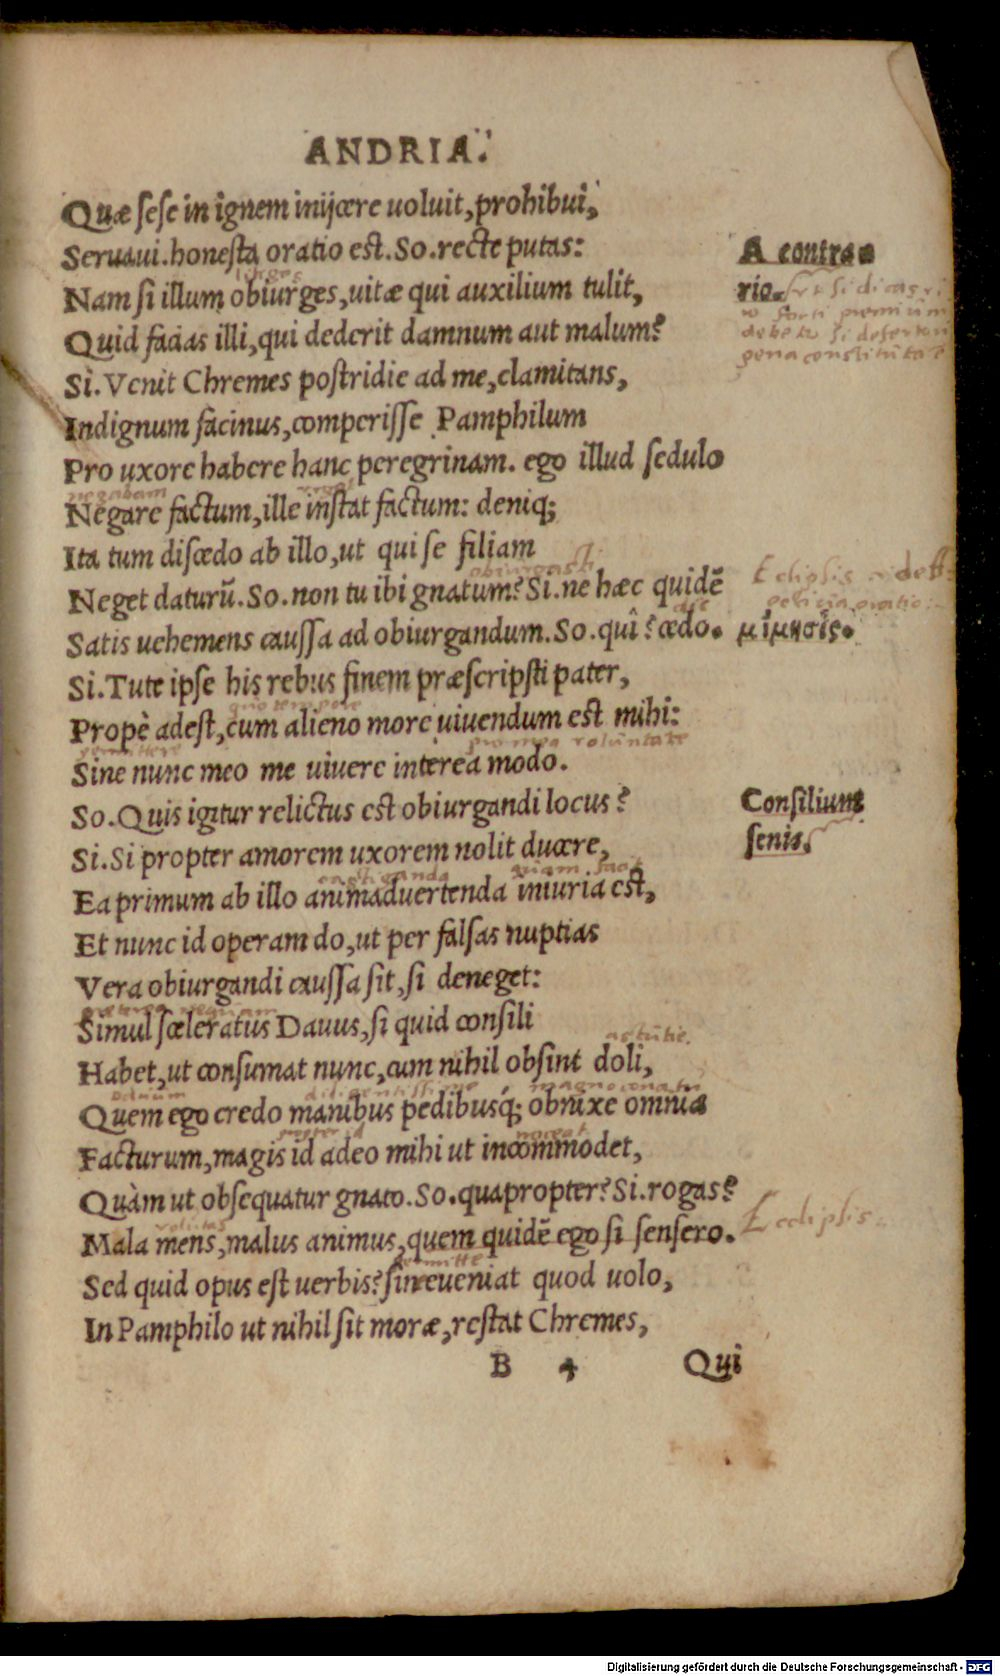 ANDRIA.
Quæ sese in ignem inijcere uoluit, prohibui,
Seruaui. honesta oratio est. So. recte putas:
A contra
Nam si illum obiurges, uitæ qui auxilium tulit,
rio.
Quid facias illi, qui dederit damnum aut malum?
Si. Venit Chremes postridie ad me, clamitans,
Indignum facinus, comperisse Pamphilum
Pro uxore habere hanc peregrinam. ego illud sedulo
negabam
Negare factum, ille instat factum: deniq;
Ita tum discedo ab illo, ut qui se filiam
obiurgasti
Ecclipsis
Neget daturū. So. non tu ibi gnatum? Si. ne hæc quidē
dic
Satis uehemens caussa ad obiurgandum. So. quî? cedo.
μίμησις.
Si. Tute ipse his rebus finem præscripsti pater,
quo tempore
Propè adest, cum alieno more uiuendum est mihi:
permittere
pro mea voluntate
Sine nunc meo me uiuere interea modo.
So. Quis igitur relictus est obiurgandi locus?
Consilium
Si. Si propter amorem uxorem nolit ducere,
senis.
castiganda
quam facit
Ea primum ab illo animaduertenda iniuria est,
Et nunc id operam do, ut per falsas nuptias
Vera obiurgandi caussa sit, si deneget:
præterea nequam
Simul sceleratus Dauus, si quid consili
astutie.
Habet, ut consumat nunc, cum nihil obsint doli,
Dauum
diligentissime
magno conatu
Quem ego credo manibus pedibusq́; obnixe omnia
propter id
noceat
Facturum, magis id adeo mihi ut incommodet,
Quàm ut obsequatur gnato. So. quapropter? Si. rogas?
Ecclipsis.
volutas
Mala mens, malus animus, quem quidē ego si sensero.
permitte
Sed quid opus est uerbis? sin eueniat quod uolo,
In Pamphilo ut nihil sit moræ, restat Chremes,
B 4 Qui
Digitalisierung gefördert durch die Deutsche Forschungsgemeinschaft - DFG